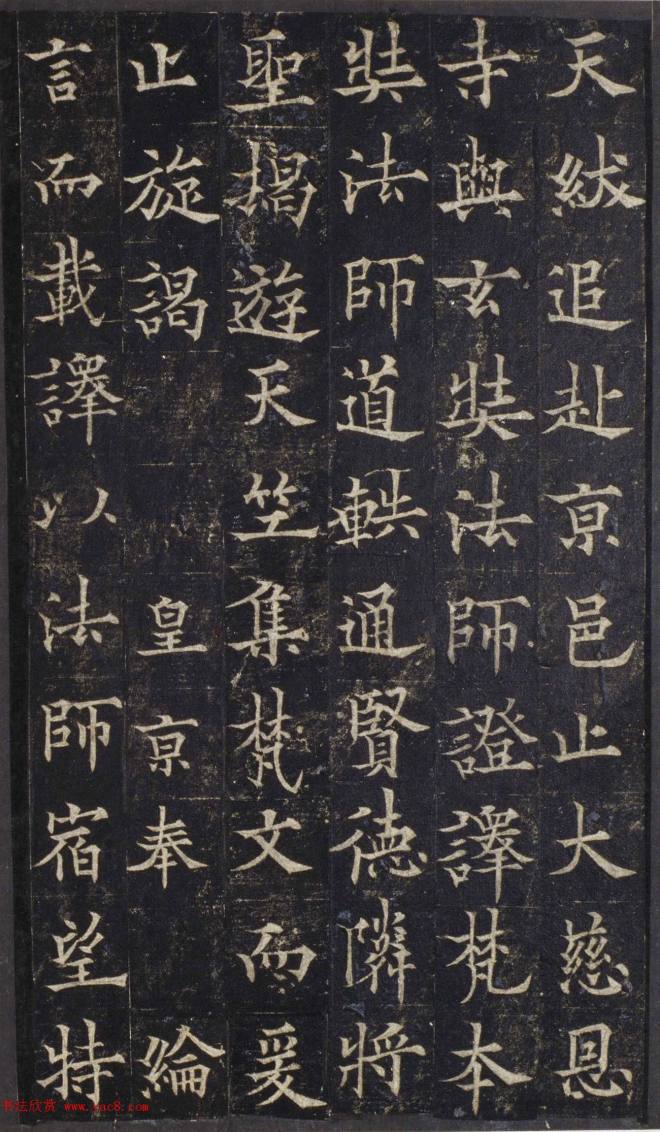 天紱追赴亰邑止大慈恩
寺與玄奘法師證譯梵本
奘法師道軼通賢德隣將
聖揭遊天竺集梵文而爰
止旋謁 皇亰奉 綸
言而載譯以法師宿望特
书法欣赏 www.yac8.com